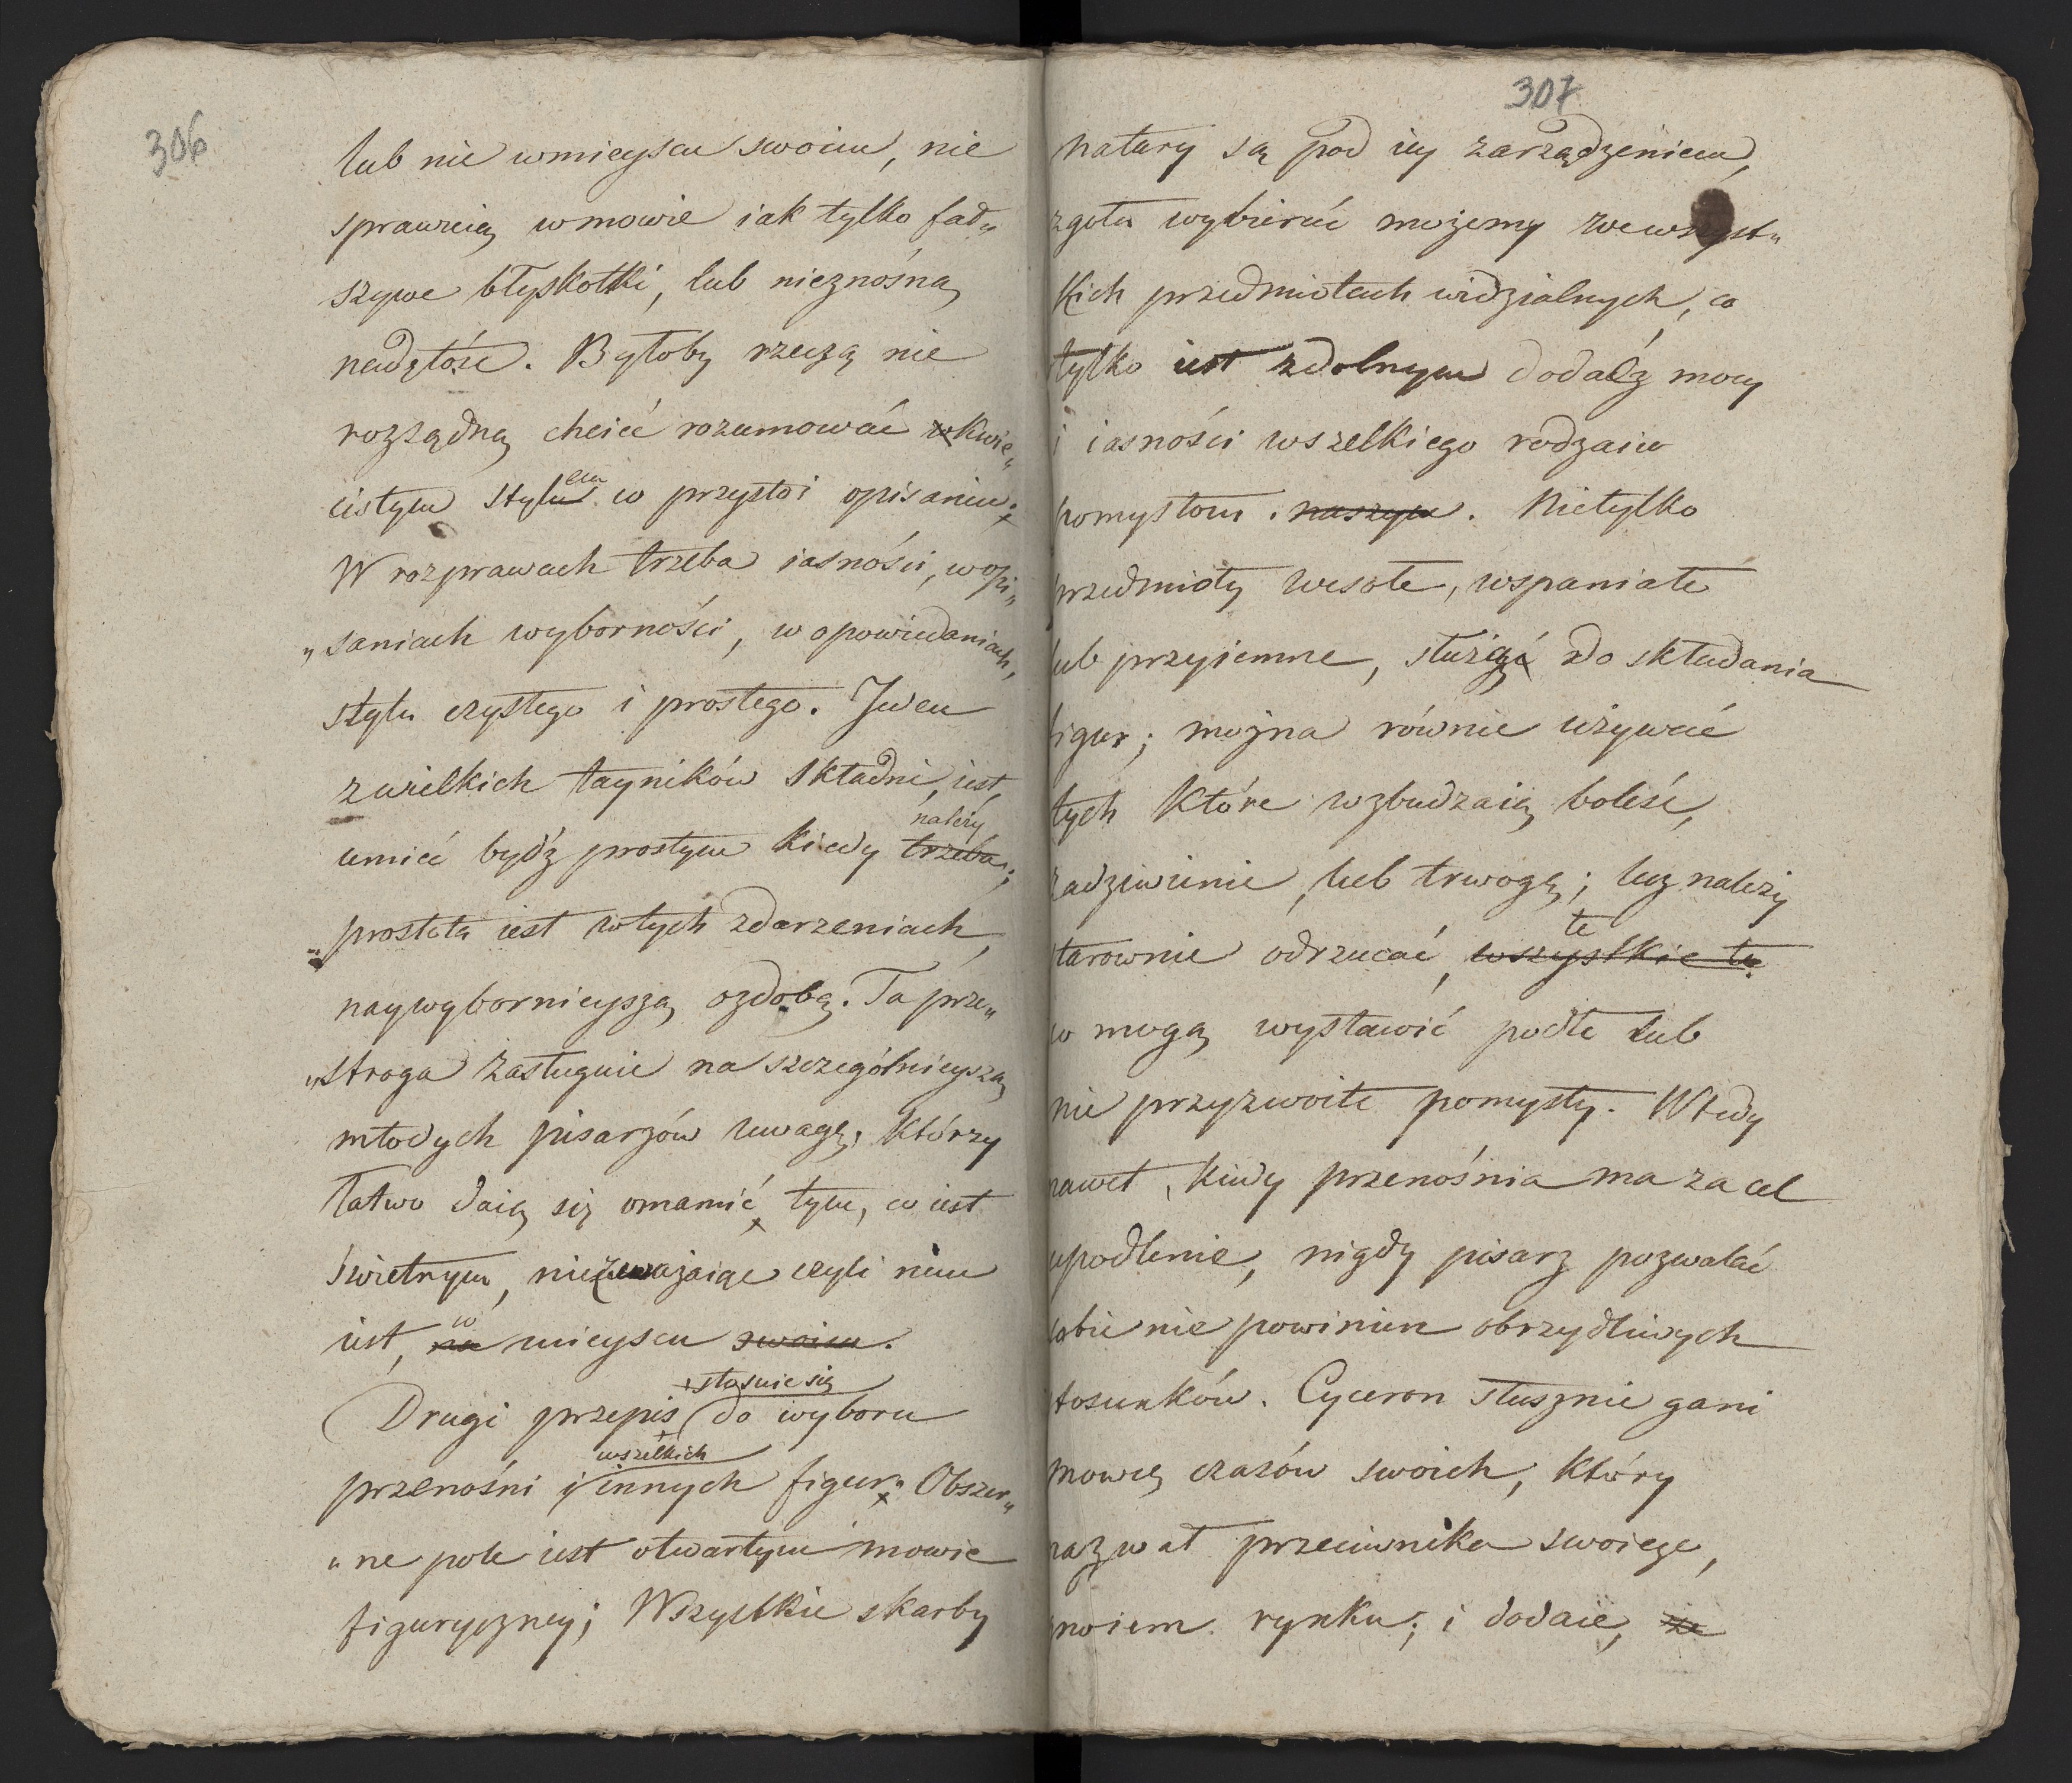 306
lub nie wmieyscu swoim, nie
sprawuią wmowie iak tylko fał„
szywe błyskotki, lub nieznośną
nadętość. Byłoby rzeczą nie
rozsądną chcieć rozumować w kwie„
cistym stylu em w przystoi opisaniu;
W rozprawach trzeba iasności, w opi„
„saniach wyborności, w opowiadaniach,
stylu czystego i prostego. Jden
zwielkich tayników składni, iest,
należy
umieć bydź prostym kiedy trzeba;
prostota iest wtych zdarzeniach,
naywybornieyszą ozdobą. Ta prze„
„stroga zasługuie na szczególnieyszą
młodych pisarzów uwagę, którzy
łatwo daią się omamić, tym, co iest
świetnym, nieuważaiąc czyli nim
iest, na w mieyscu swoim.
stosuie się
Drugi przepis do wyboru
wszelkich
przenośni i innych figur. Obszer„
„ne pole iest otwartym mowie
figuryczney; Wszystkie skarby
307
natury są pod iey zarządzeniem,
zgoła wybierać możemy wewszyst„
kich przedmiotach widzialnych, co
tylko iest zdolnym dodadź mocy
i iasności wszelkiego rodzaiu
pomysłom naszym. Nietylko
przedmioty wesołe, wspaniałe
lub przyiemne, służą do składania
figur; można równie używać
tych które wzbudzaią boleść,
zadziwienie, lub trwogę; lecz należy
te
starownie odrzucać, wszystkie te
co mogą wystawić podłe lub
nie przyzwoite pomysły. Wtedy
nawet, kiedy przenośnia ma za cel
upodlenie, nigdy pisarz pozwalać
sobie nie powinien obrzydliwych
stosunków. Cyceron słusznie gani
mowcę czasów swoich, który
nazwał przeciwnika swoiego,
gnoiem rynku; i dodaie, że